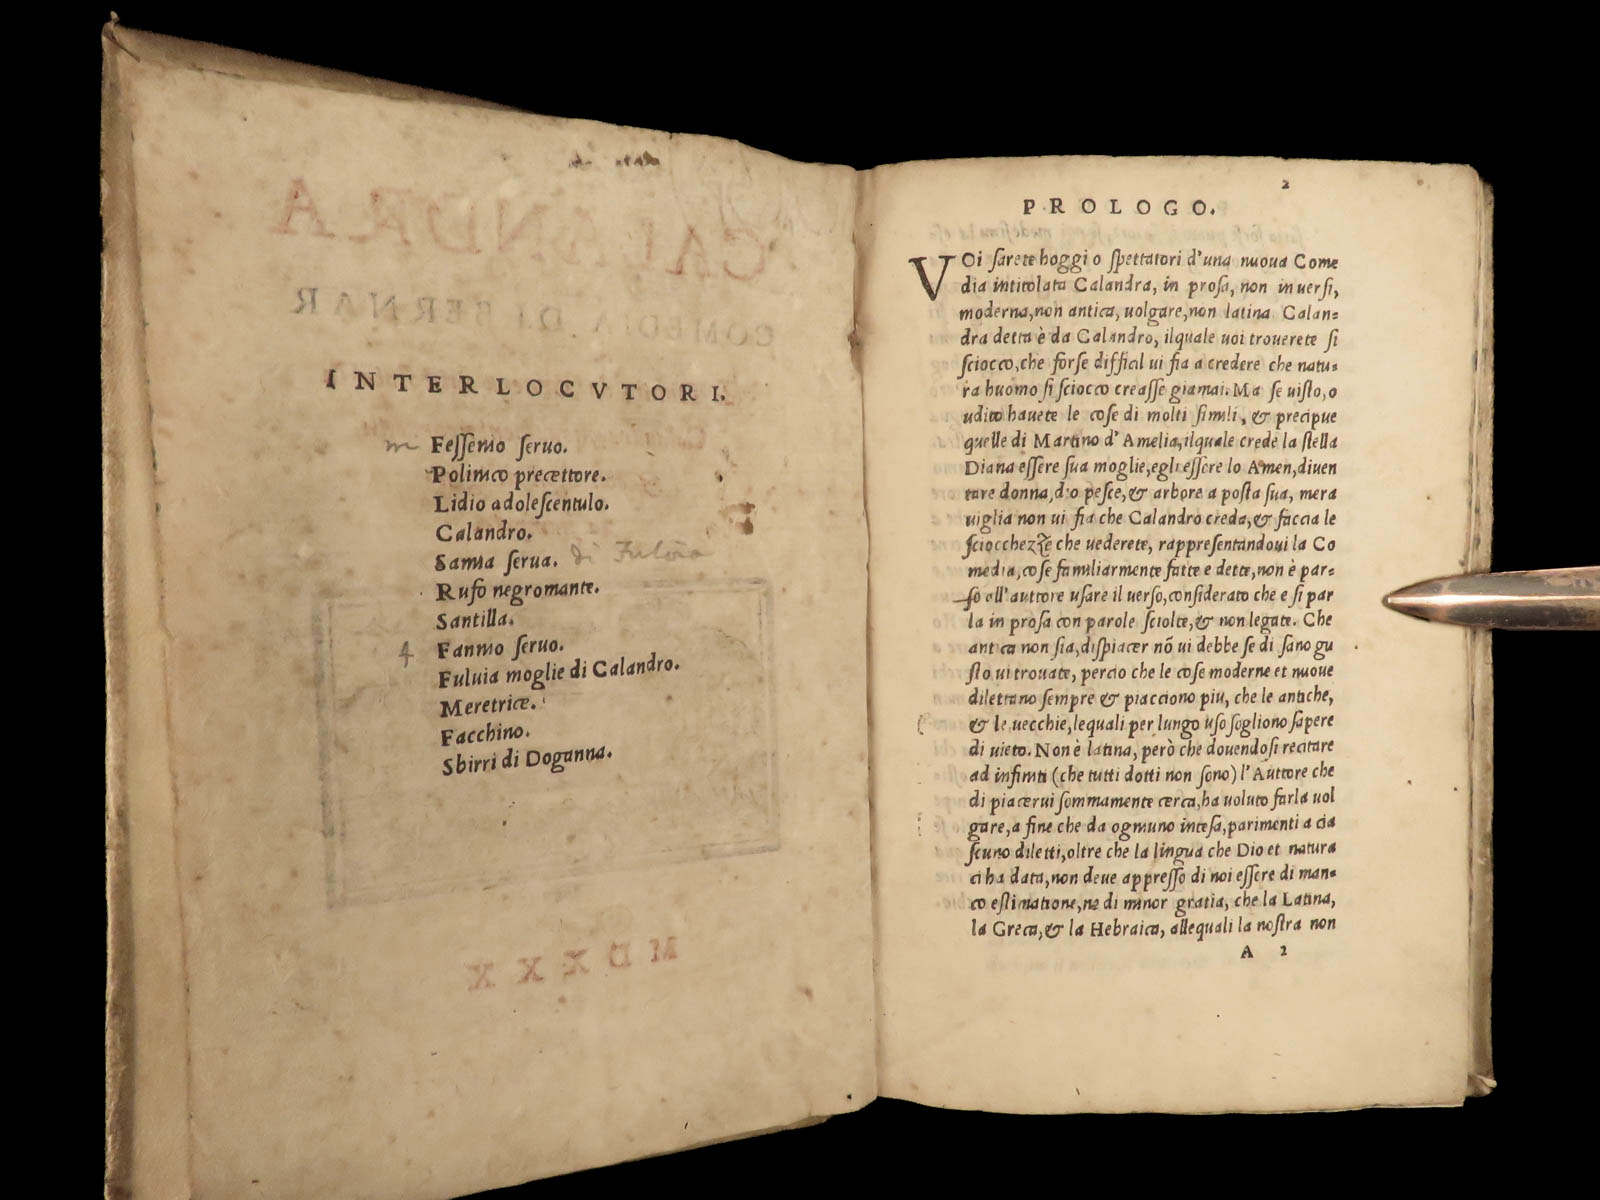 INTERLOCVTORI.
Fessenio seruo.
Polinico precettore.
Lidio adolescentulo.
Calandro.
Samia serua. di Fulvia
Rufo negromante.
Santilla.
Fannio seruo.
Fuluia moglie di Calandro.
Meretrice.
Facchino.
Sbirri di Doganna.
2
PROLOGO.
VOi sarete hoggi o spettatori d'una nuoua Come
dia intitolata Calandra, in prosa, non in uersi,
moderna, non antica, uolgare, non latina Calan=
dra detta è da Calandro, ilquale uoi trouerete si
sciocco, che forse difficil ui fia a credere che natu=
ra huomo si sciocco creasse giamai. Ma se uisto, o
udito hauete le cose di molti simili, & precipue
quelle di Martino d'Amelia, ilquale crede la stella
Diana essere sua moglie, egli essere lo Amen, diuen
tare donna, dio pesce, & arbore a posta sua, mera
uiglia non ui fia che Calandro creda, & faccia le
sciocchezze che uederete, rappresentandoui la Co
media, cose familiarmente fatte e dette, non è par=
so all'auttore usare il uerso, considerato che e si par
la in prosa con parole sciolte, & non legate. Che
antica non sia, dispiacer nõ ui debbe se di sano gu
sto ui trouate, percio che le cose moderne et nuoue
dilettano sempre & piacciono piu, che le antiche,
& le uecchie, lequali per lungo uso sogliono sapere
di uieto. Non è latina, però che douendosi recitare
ad infiniti (che tutti dotti non sono) l'Auttore che
di piacerui sommamente cerca, ha uoluto farla uol
gare, a fine che da ogniuno intesa, parimenti a cia
scuno diletti, oltre che la lingua che Dio et natura
ci ha data, non deue appresso di noi essere di man=
co estimatione, ne di minor gratia, che la Latina,
la Greca, & la Hebraica, allequali la nostra non
A 2